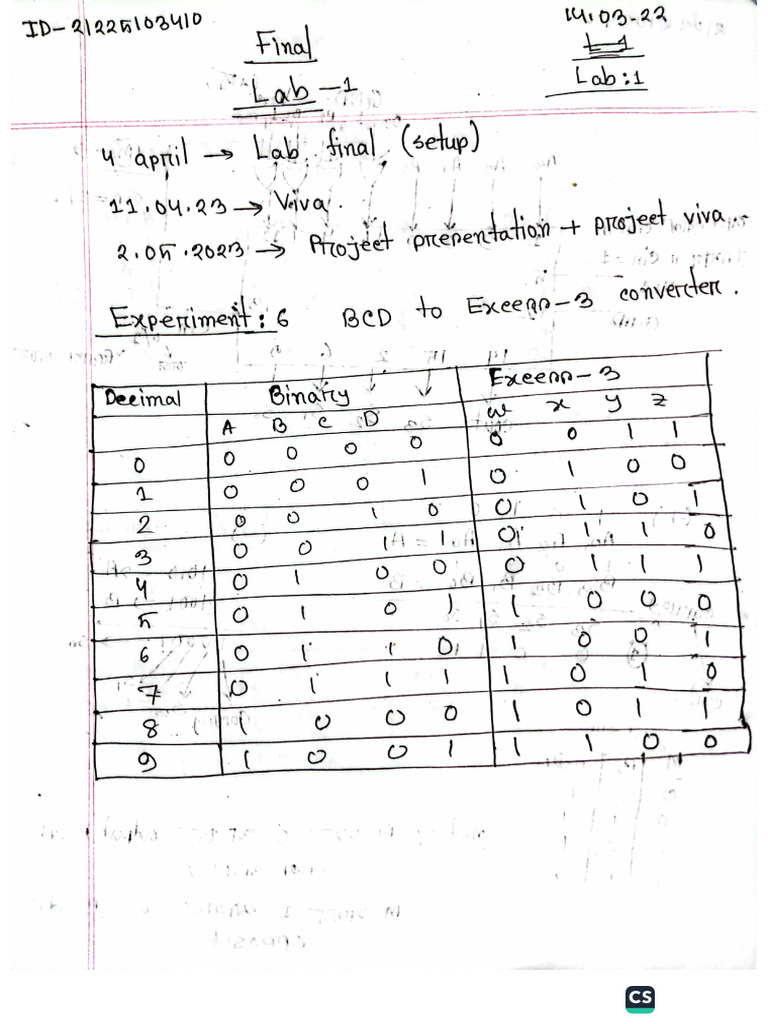 ID-21225103410
14.03.22
Final
L-1
Lab-1
Lab:1
4 april → Lab final (setup)
11.04.23 → Viva.
2.05.2023 → Project presentation + project viva.
Experiment: 6 BCD to Excess-3 converter.
Decimal Binary Excess-3
A B C D w x y z
0 0 0 0 0 0 0 1 1
1 0 0 0 1 0 1 0 0
2 0 0 1 0 0 1 0 1
3 0 0 1 1 0 1 1 0
4 0 1 0 0 0 1 1 1
5 0 1 0 1 1 0 0 0
6 0 1 1 0 1 0 0 1
7 0 1 1 1 1 0 1 0
8 1 0 0 0 1 0 1 1
9 1 0 0 1 1 1 0 0
CS